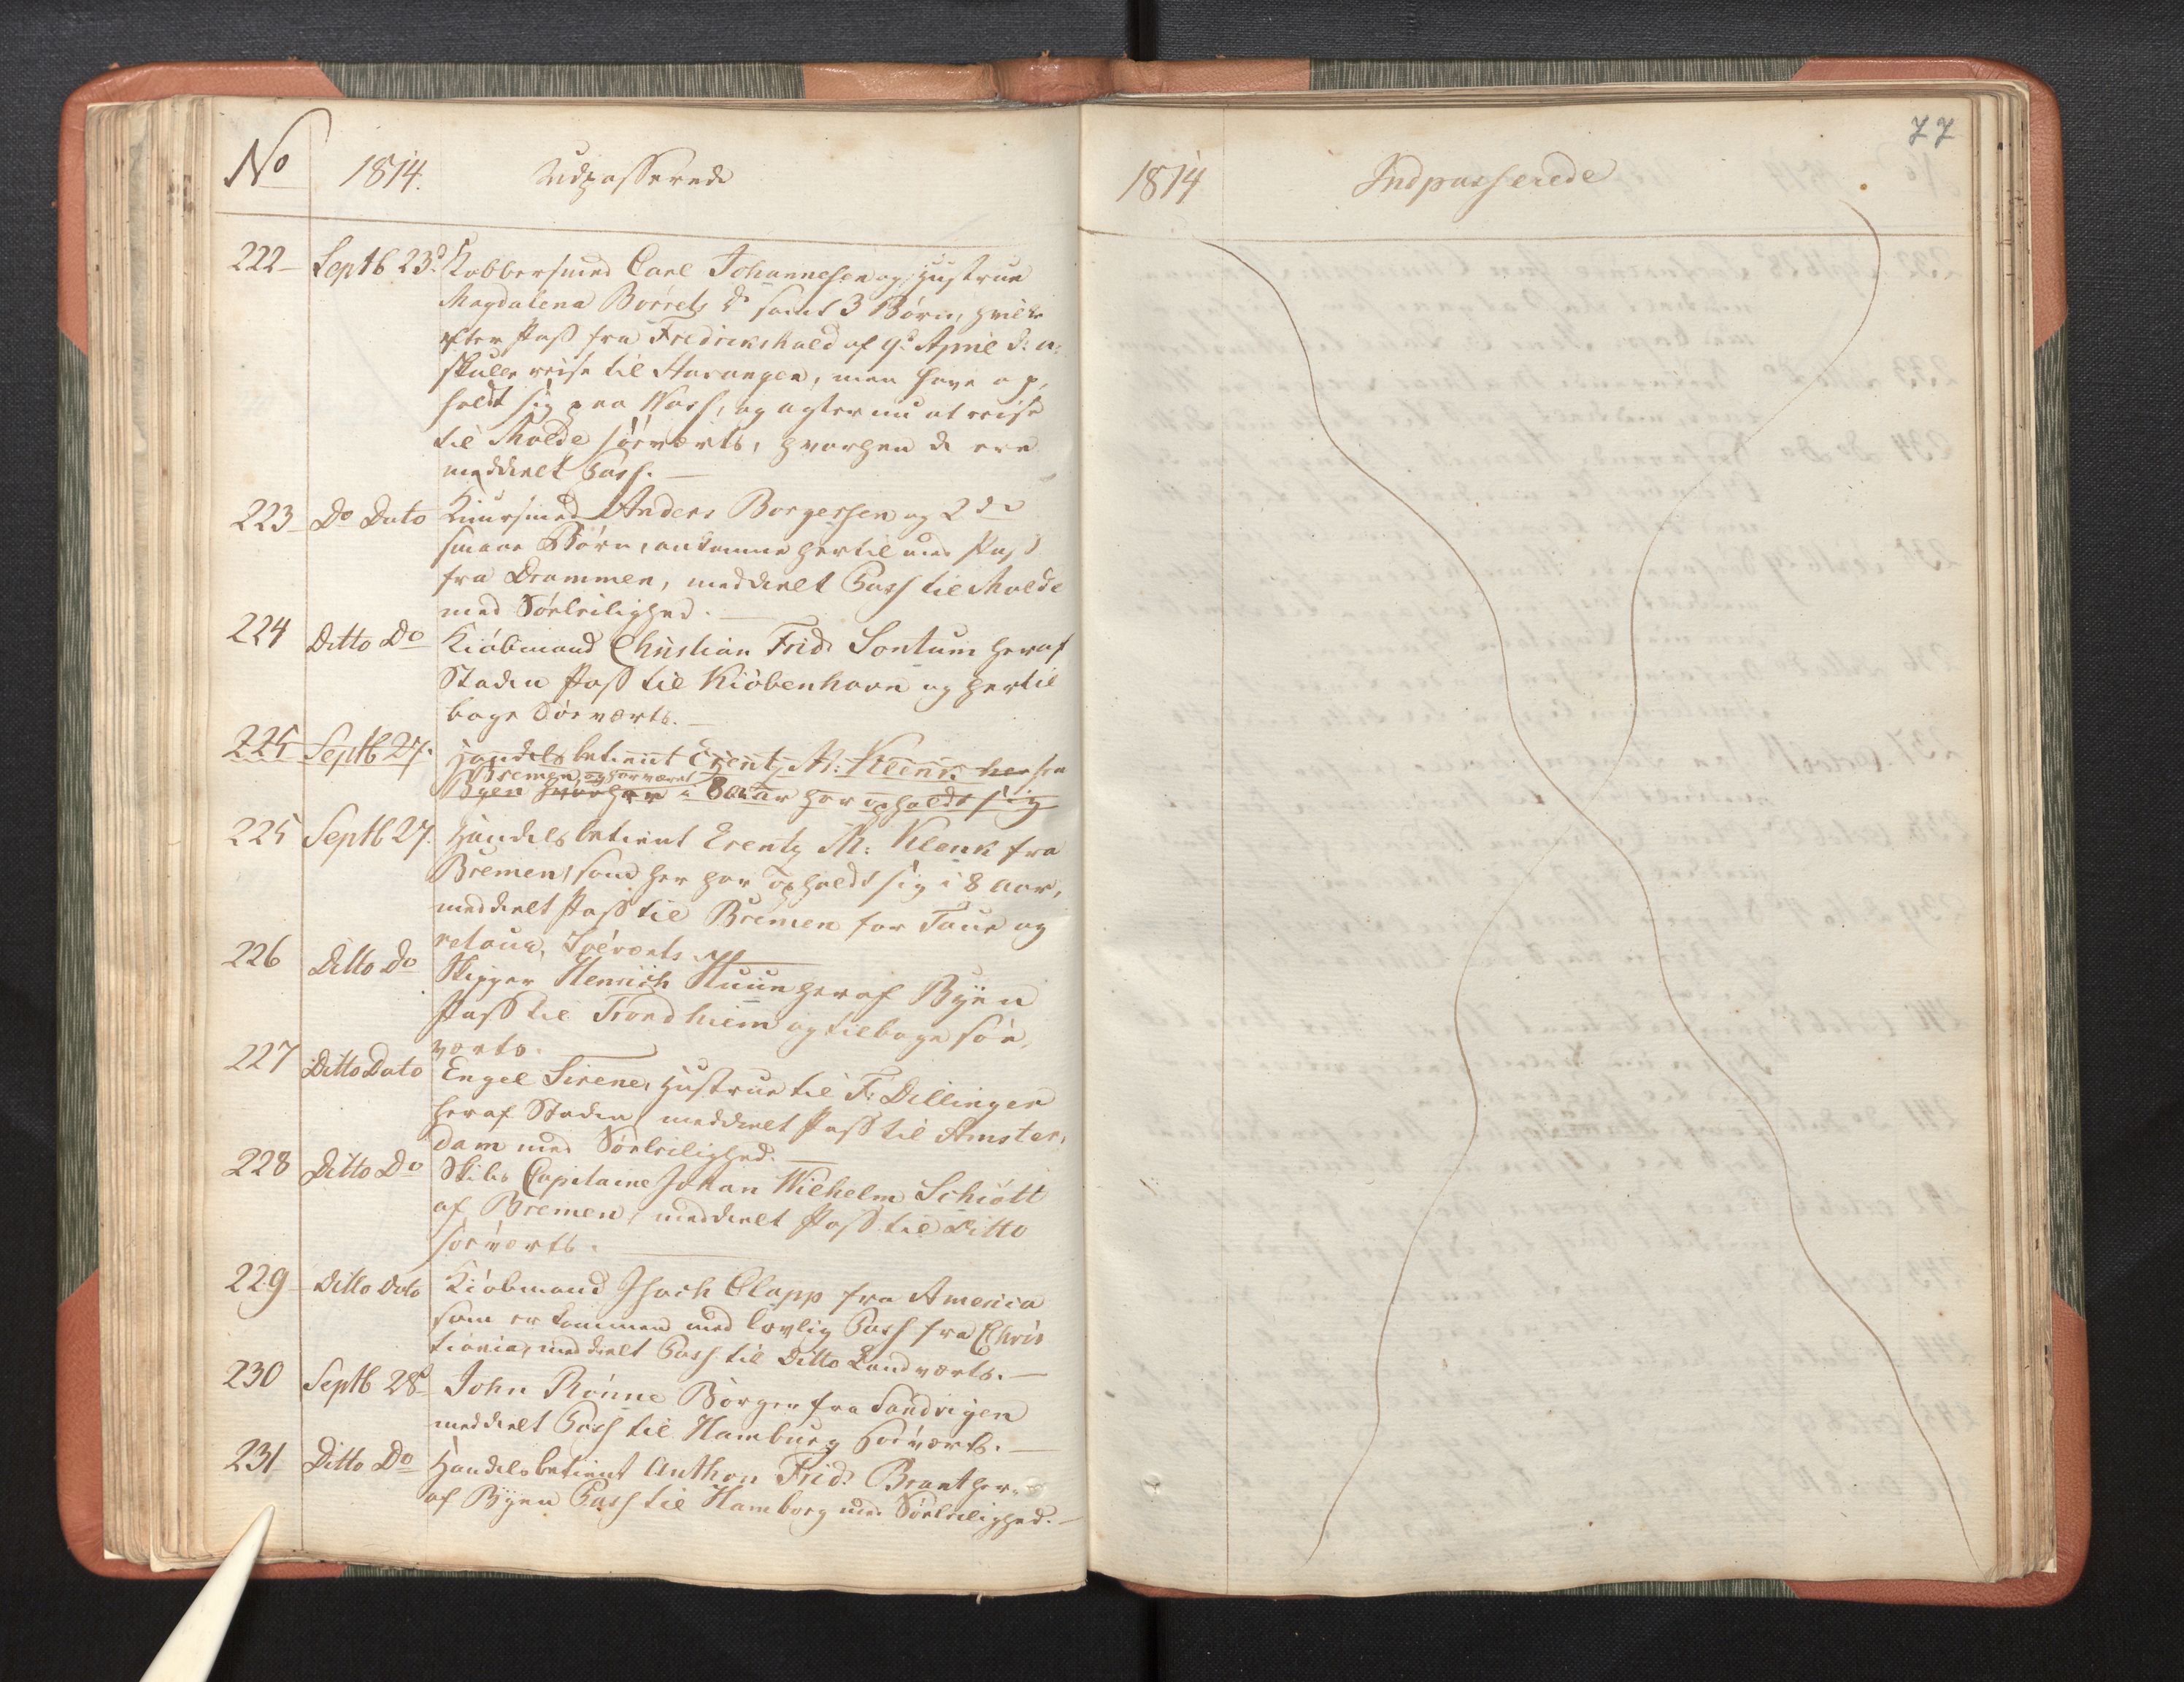 No 1814. Udpasserede
222 Septb 23d Kobbersmed Carl Johannesen og Hustrue
Magdalena Borrets Dr samt 3 Børn, hvilke
efter Pass fra Fredrikshald af 9d April d: a:
skulle reise til Stavanger, men have op,
holdt sig paa Voss, og agter nu at reise
til Molde søeverts, hvorhen de ere
meddeelt Pass. —
223 Do Dato Knivsmed Anders Borgersen og 2de
smaae Børn, ankomne hertil med Pass
fra Drammen, meddeelt Pass til Molde
med Søeleilighed. —
224 Ditto Do Kiøbmand Christian Frid: Sontum heraf
Staden Pass til Kiøbenhavn og hertil
bage Søeverts. —
225 Septb 27. Handelsbetient Erentz M: Klenk her fra
Bremen og har været
Byen i 8 aar har opholdt sig
225 Septb 27. Handelsbetient Erentz M: Klenk fra
Bremen, som her har opholdt sig i 8 Aar,
meddeelt Pass til Bremen for Tour og
retour, Søeverts.
226 Ditto Do Skipper Henrich Kuun heraf Byen
Pass til Trondhiem og tilbage søe,
verts.
227 Ditto Dato Engel Sirene, Hustrue til F: Dillinger
heraf Staden meddeelt Pass til Amster,
dam med Søeleilighed. —
228 Ditto Do Skibs Capitaine Johan Wilhelm Schiött
af Bremen, meddeelt Pass til Ditto
søeverts.
229 Ditto Dato Kiøbmand Isach Clapp fra America
som er kommen med lovlig Pass fra Chris
tiania, meddeelt Pass til Ditto Landverts. —
230 Septb 28d John Rönne Borger fra Sandvigen
meddeelt Pass til Hamburg søeverts. —
231 Ditto Do Handelsbetient Anthon Frid: Brant her,
af Byen Pass til Hamborg med Søeleilighed. —
77
1814 Indpasserede